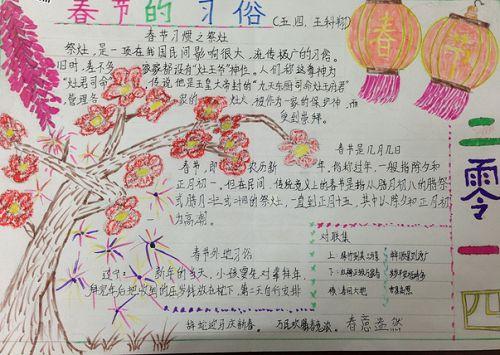 春节的习俗
(五、四、王科招)
春节习惯之祭灶
祭灶，是一项在我国民间影响很大，流传极广的习俗。
旧时，差不多 家家都设有"灶王爷"神位。人们称这尊神为
"灶君司命" 传说他是玉皇大帝封的"九天东厨司命灶王府君"
管理各 家的 灶火，被作为一家的保护神，而
受到崇拜
春
春节是几月几日
春节，即 农历新 年，俗称过年，一般指除夕和
正月初一。但在民间，传统意义上的春节是指从腊月初八的腊祭
或腊月 的祭灶，一直到正月十五，其中以除夕和正月初
一为高潮。
春节外地习俗
新年的当天，小孩要先对 拜年，
拜完年后把收到的压岁钱放在枕下，第二天自行安排
对联集
上
下
横：春回大地
辞蛇迎马庆新春。 万民欢 春意盎然
二零一四